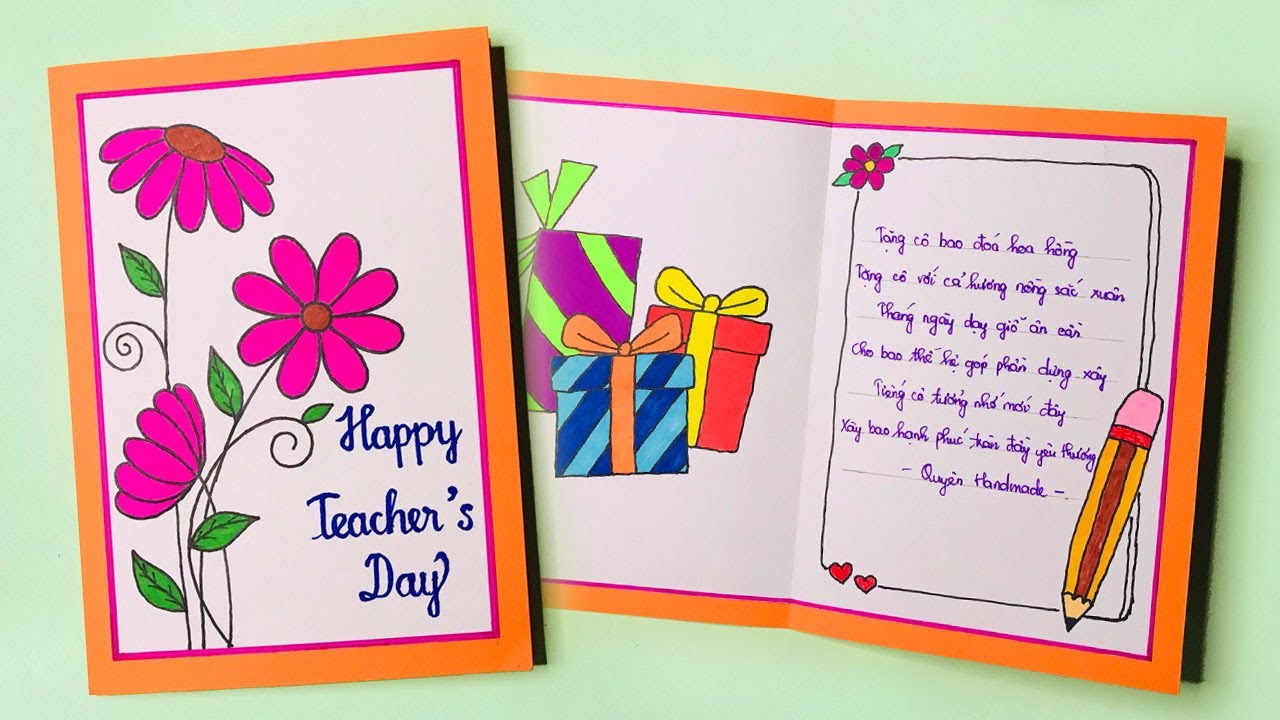 Happy
Teacher's
Day
Tặng cô bao đoá hoa hồng
Tặng cô với cả hương nồng sắc xuân
Tháng ngày dạy giỗ ân cần
Cho bao thế hệ góp phần dựng xây
Tiếng cô tưởng nhớ mới đây
Xây bao hạnh phúc tràn đầy yêu thương
- Quyên Handmade -